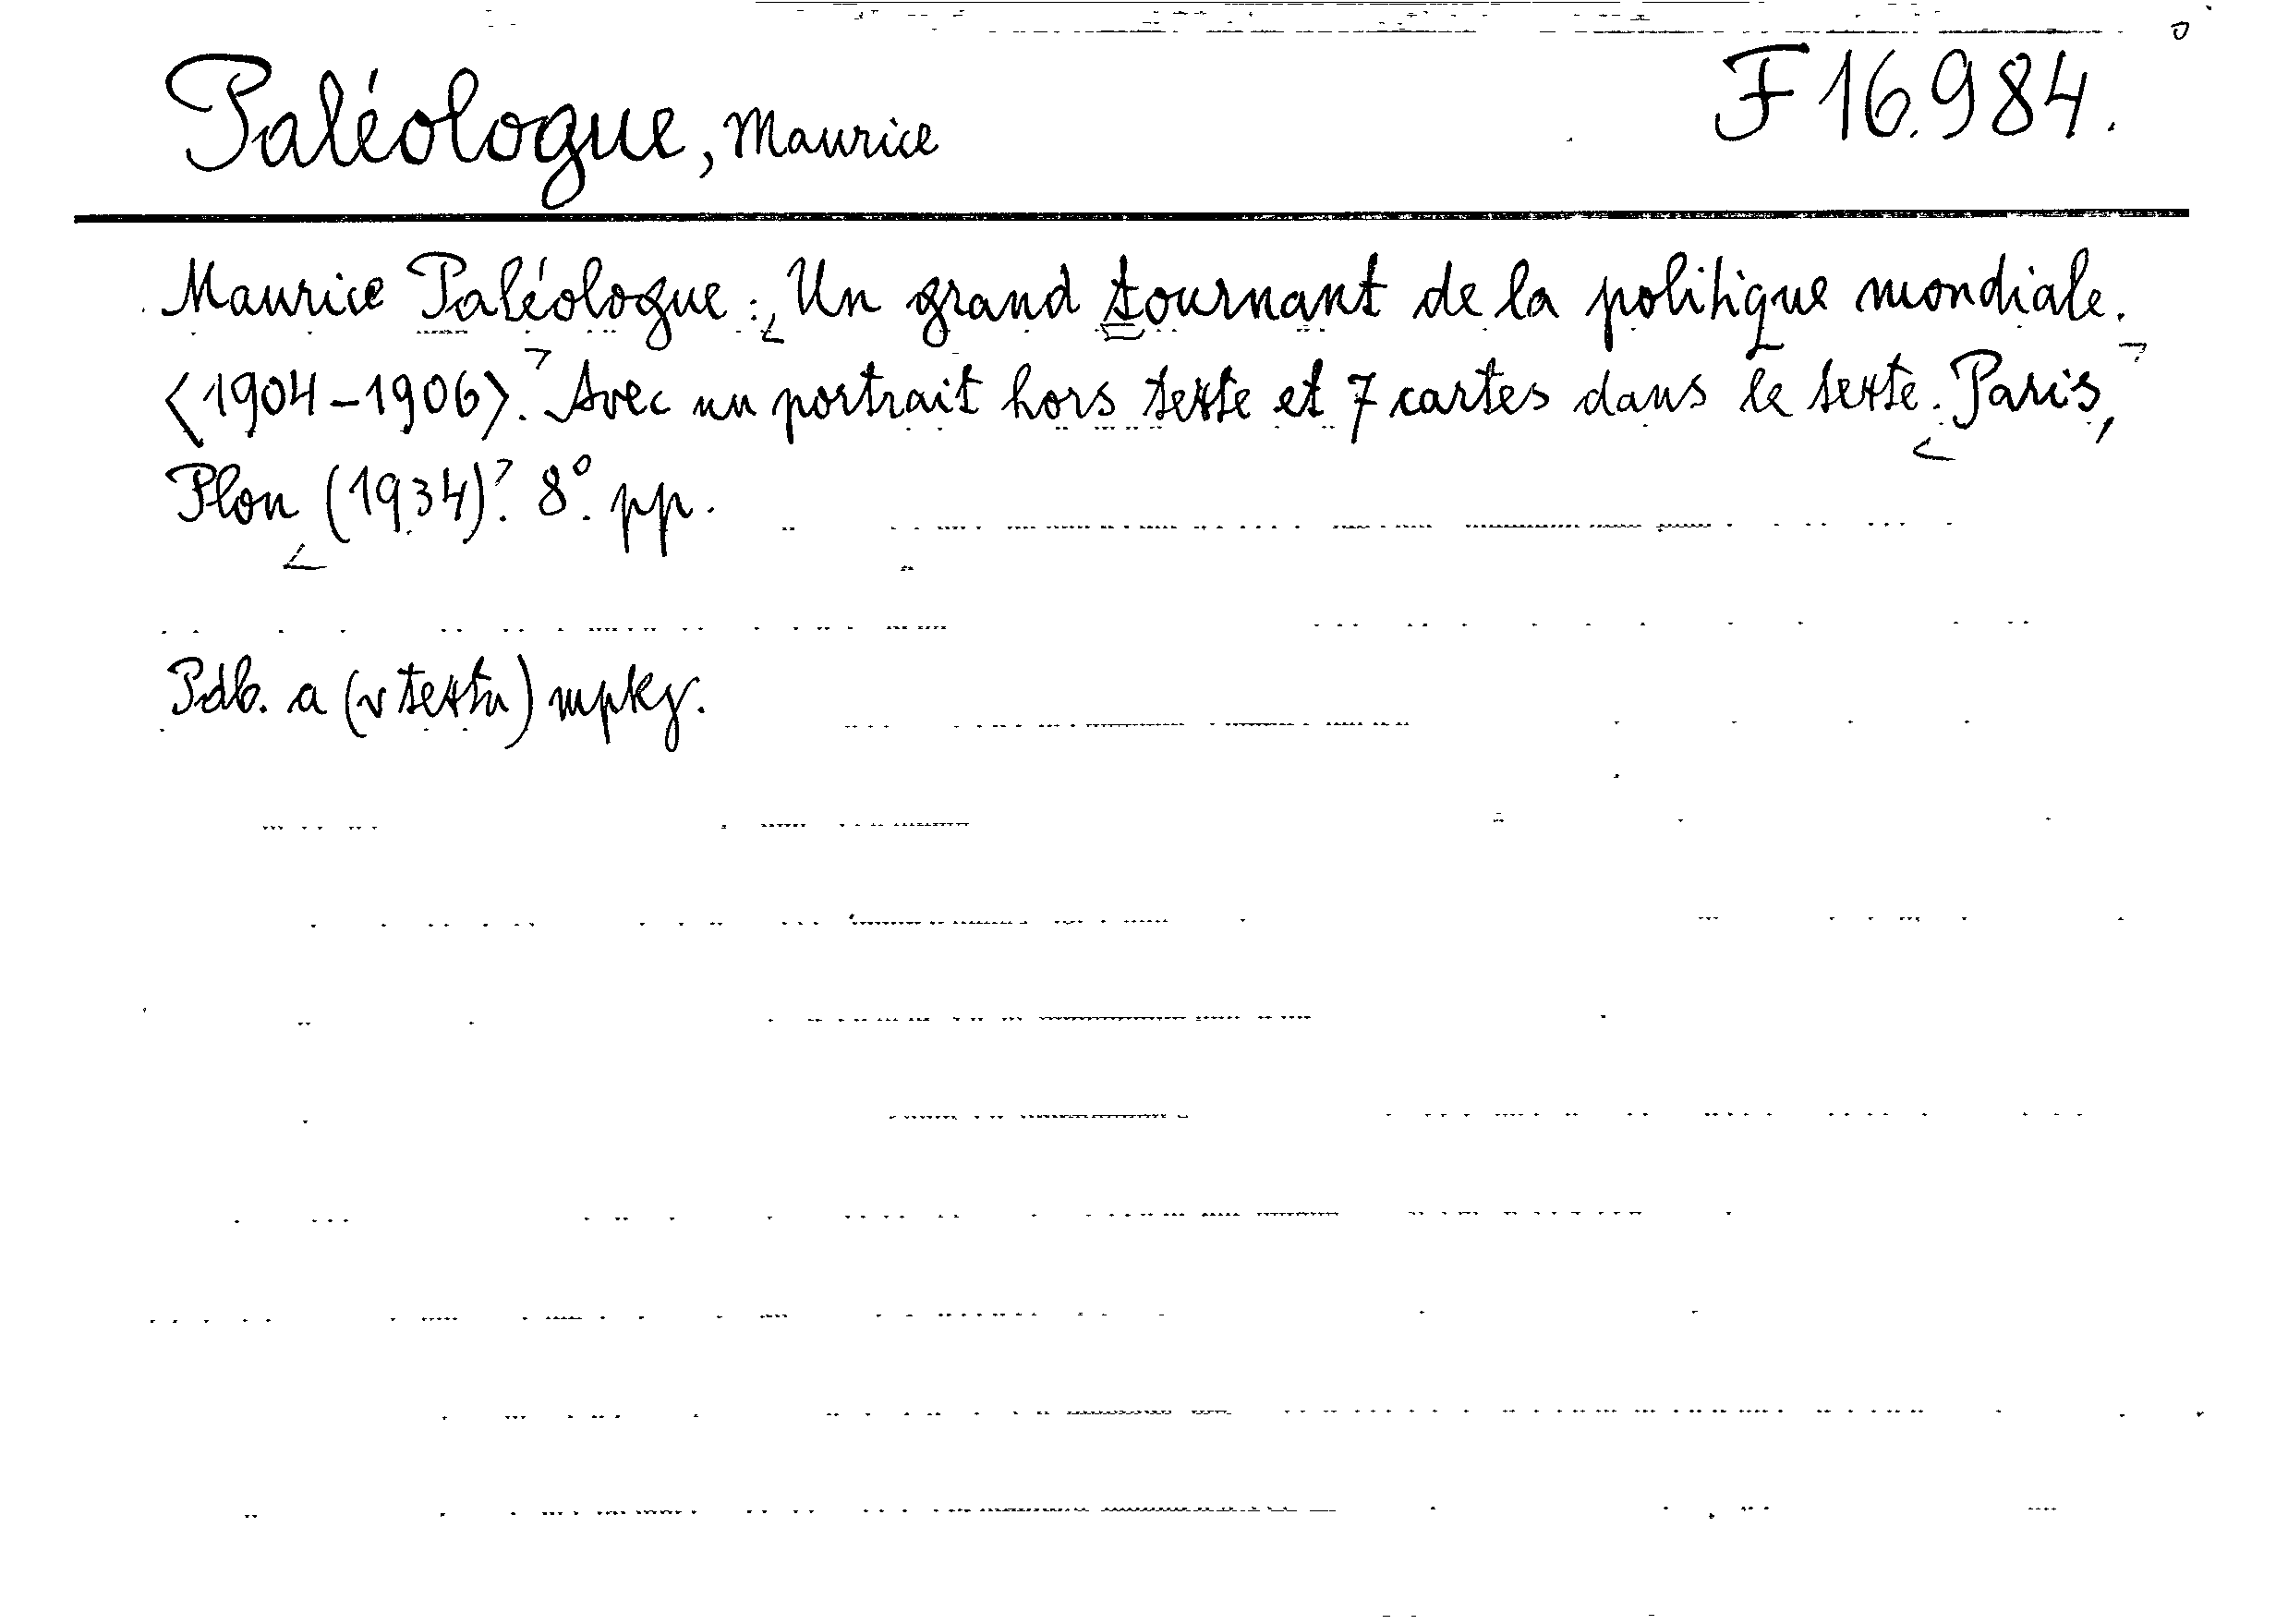 Paléologue, Maurice F 16.984.
Maurice Paléologue: Un grand tournant de la politique mondiale.
<1904-1906>. Avec un portrait hors texte et 7 cartes dans le texte. Paris,
Plon (1934). 8°. pp.
Pdb. a (v textu) mpky.